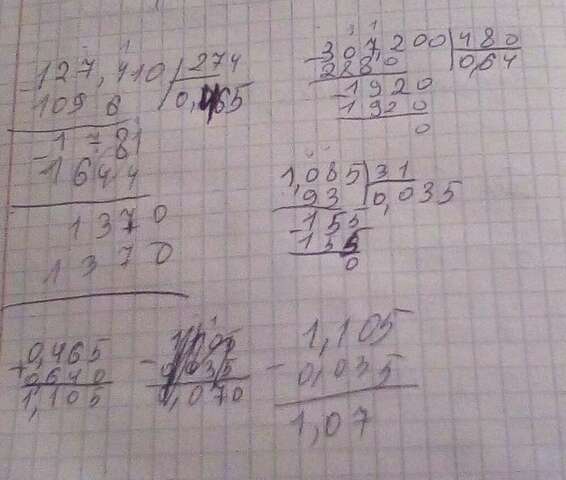 127,410 | 274
- 1096 0,465
- 1781
1644
1370
1370
- 307,200 | 480
2880 0,64
- 1920
- 1920
0
1,085 | 31
93 0,035
- 155
155
0
0,465
+ 0,640
1,105
1,105
- 0,035
1,070
1,105
- 0,035
1,07